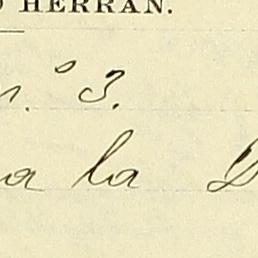 HERRAN.
n.º 3.
a la